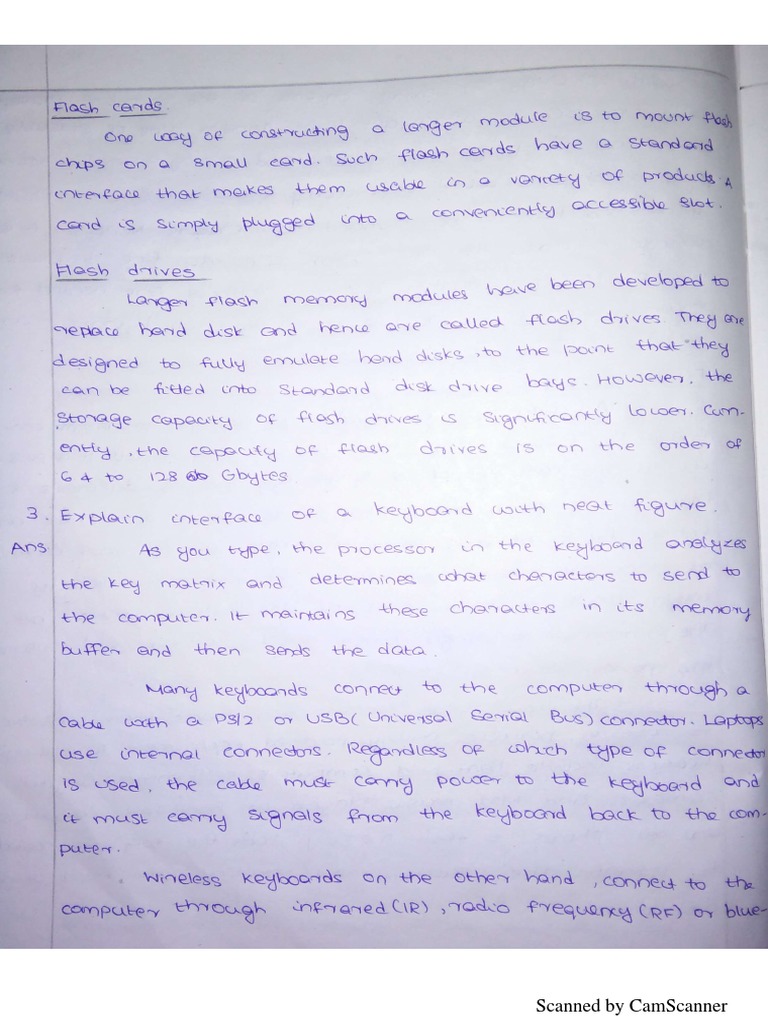 Flash cards
One way of constructing a larger module is to mount flash
chips on a small card. Such flash cards have a standard
interface that makes them usable in a variety of products. A
card is simply plugged into a conveniently accessible slot.
Flash drives
Larger flash memory modules have been developed to
replace hard disk and hence are called flash drives They are
designed to fully emulate hard disks, to the point that they
can be fitted into standard disk drive bays. However, the
storage capacity of flash drives is significantly lower. Curr-
ently, the capacity of flash drives is on the order of
64 to 128 Gbytes
3. Explain interface of a keyboard with neat figure.
Ans As you type, the processor in the keyboard analyzes
the key matrix and determines what characters to send to
the computer. It maintains these characters in its memory
buffer and then sends the data.
Many keyboards connect to the computer through a
cable with a PS/2 or USB (Universal Serial Bus) connector. Laptops
use internal connectors. Regardless of which type of connector
is used, the cable must carry power to the keyboard and
it must carry signals from the keyboard back to the com-
puter.
Wireless keyboards on the other hand, connect to the
computer through infrared (IR), radio frequency (RF) or blue-
Scanned by CamScanner